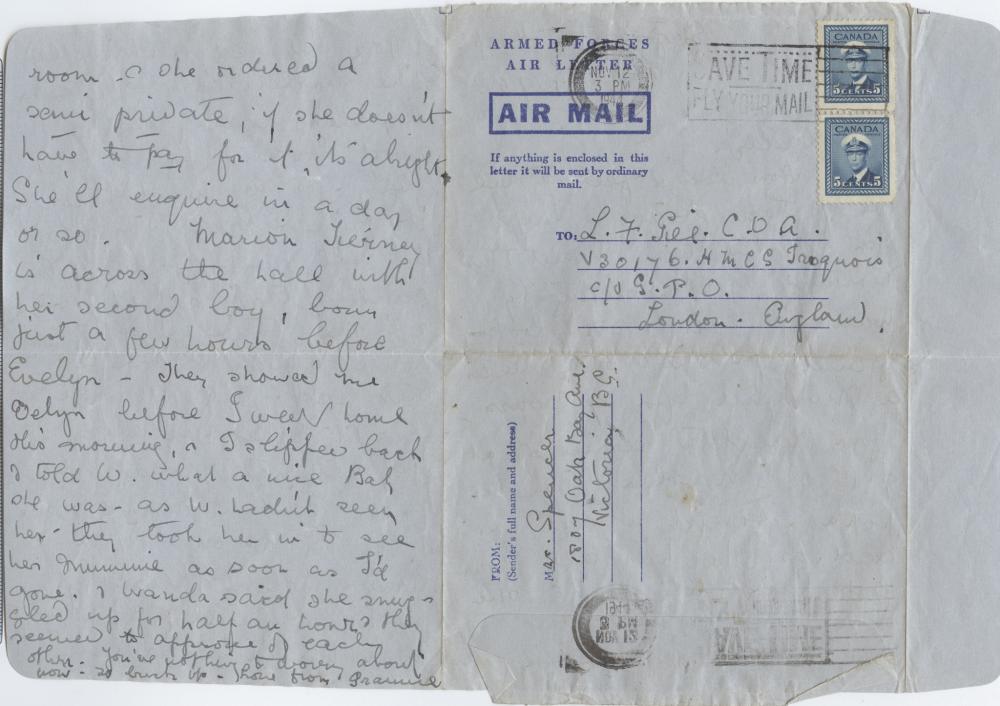 room & she ordered a
semi private, if she doesn't
have to pay for it, its alright.
She'll enquire in a day
or so. Marion Tierney
is across the hall with
her second boy, born
just a few hours before
Evelyn - They showed me
Evelyn before I went home
this morning, & I slipped back
& told W. what a nice Baby
she was - as W. hadn't seen
her - they took her in to see
her Mummie as soon as I'd
gone. & Wanda said she snug-
gled up for half an hour & they
seemed to approve of each
other. You've nothing to worry about
now - so buck up - love from Grannie
ARMED FORCES
AIR LETTER
AIR MAIL
If anything is enclosed in this
letter it will be sent by ordinary
mail.
NOV 12
3 PM
SAVE TIME
FLY YOUR MAIL
CANADA
5 CENTS 5
CANADA
5 CENTS 5
TO: L. F. C.D.A.
V30176. H M C S Iroquois
c/o G. P. O.
London - England.
FROM:
(Sender's full name and address)
Mrs. Spencer
1807 Oak Bay Ave.
Victoria, B.C.
NOV 12
3 PM